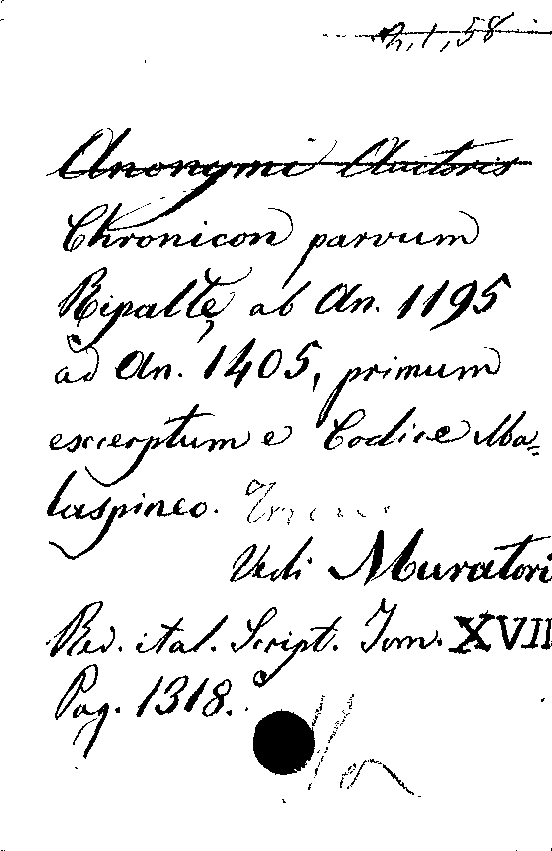 2,1,58
Anonymi Auctoris
Chronicon parvum
Ripaltę, ab An. 1195
ad An. 1405, primum
excerptum e Codice Ma=
laspineo.
Vedi Muratori
Rer. ital. Script. Tom. XVII
Pag. 1318.